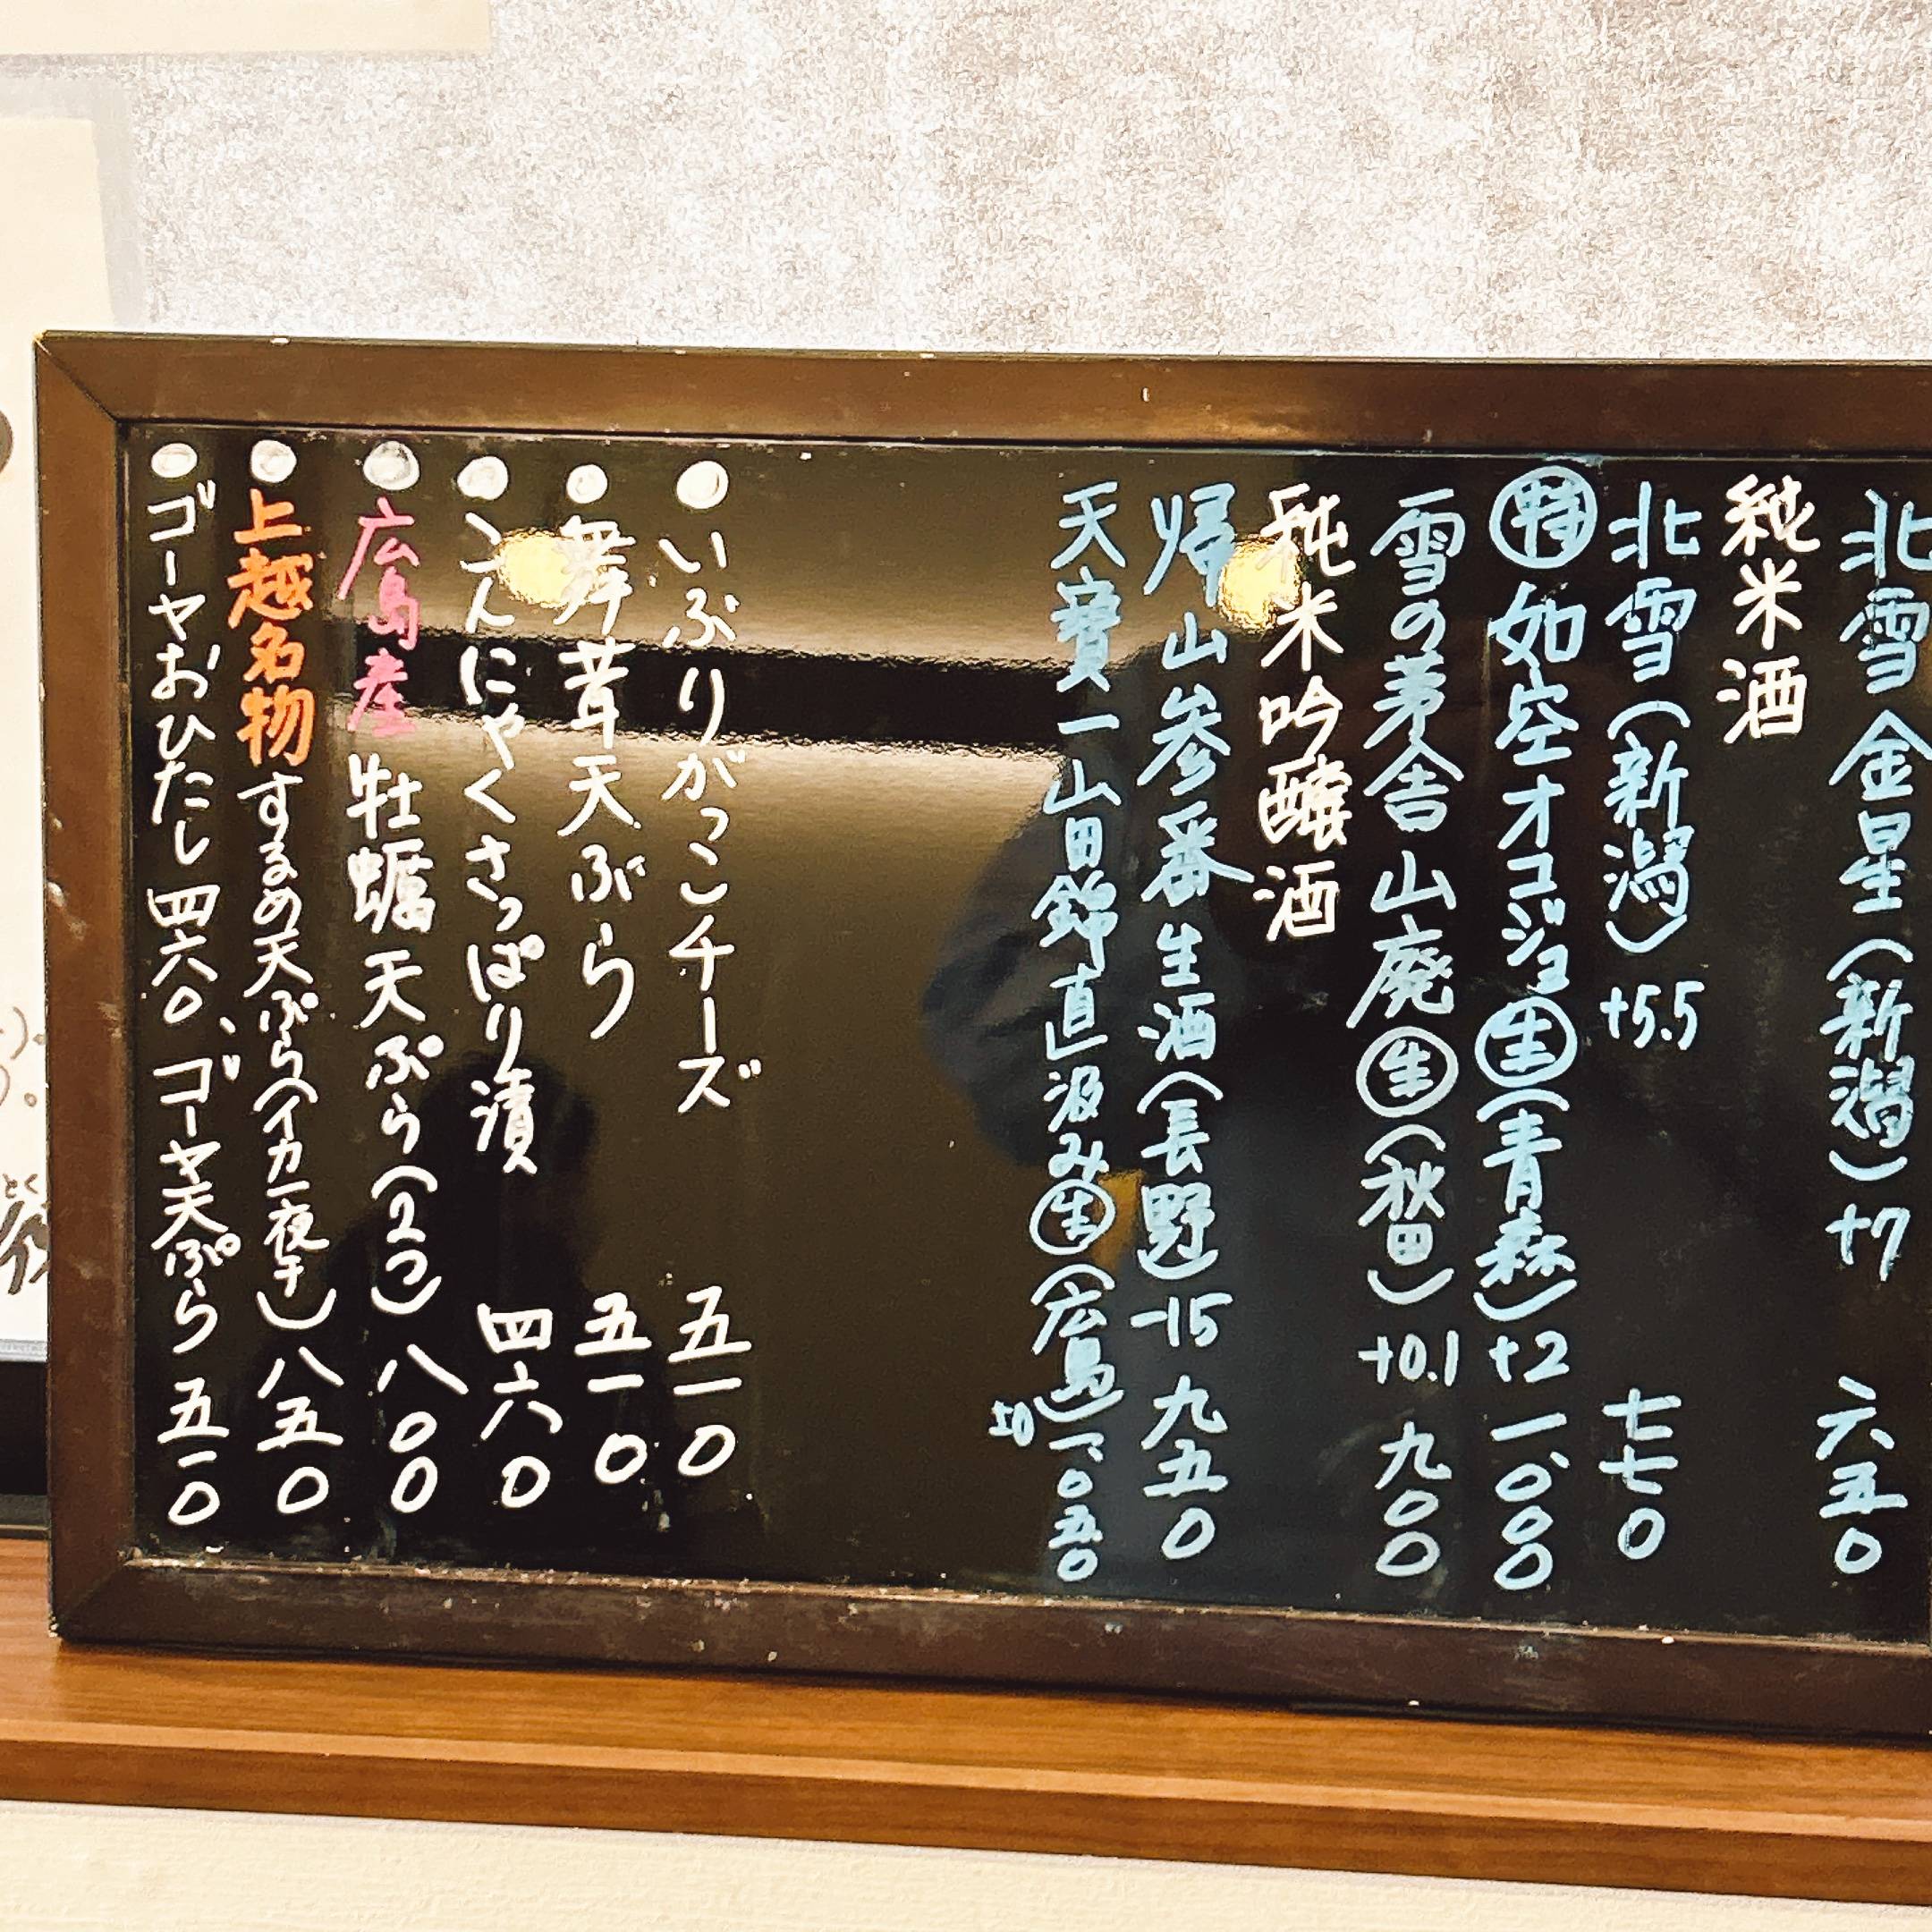 北雪 金星(新潟) +7 六五〇
純米酒
北雪(新潟) +5.5 七七〇
特 如空オコジョ生(青森) +2 一、〇〇〇
雪の茅舎 山廃 生(秋田) +0.1 九〇〇
純米吟醸酒
帰山参番生酒(長野) -15 九五〇
天寶一山田錦直汲み生(広島) ±0 一、〇五〇
いぶりがっこチーズ 五一〇
舞茸天ぷら 五一〇
こんにゃくさっぱり漬 四六〇
広島産 牡蠣天ぷら(2つ) 八〇〇
上越名物するめ天ぷら(イカ一夜干) 八五〇
ゴーヤおひたし四六〇、ゴーヤ天ぷら 五一〇